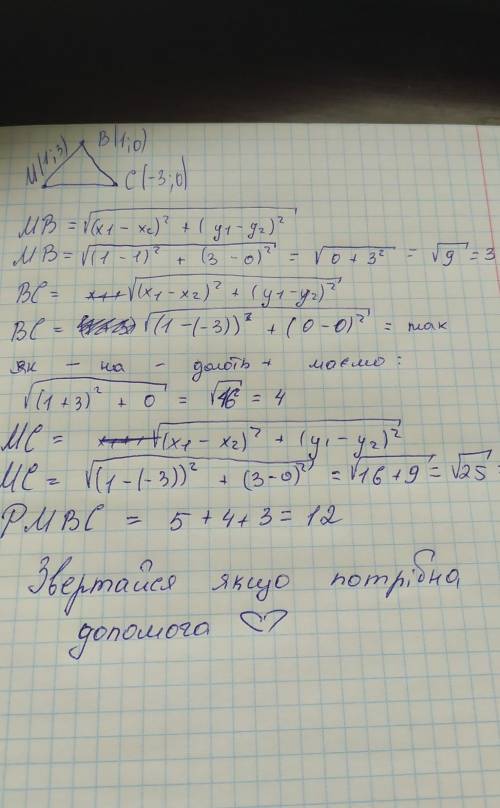 B(1;0)
M(1;3)
C(-3;0)
MB = √(x1 - x2)² + (y1 - y2)²
MB = √(1 - 1)² + (3 - 0)² = √0 + 3² = √9 = 3
BC = √(x1 - x2)² + (y1 - y2)²
BC = √(1 - (-3))² + (0 - 0)² = так
як - на - дають + маємо:
√(1 + 3)² + 0 = √16 = 4
MC = √(x1 - x2)² + (y1 - y2)²
MC = √(1 - (-3))² + (3 - 0)² = √16 + 9 = √25 =
PMBC = 5 + 4 + 3 = 12
Звертайся якщо потрібна
допомога ♡